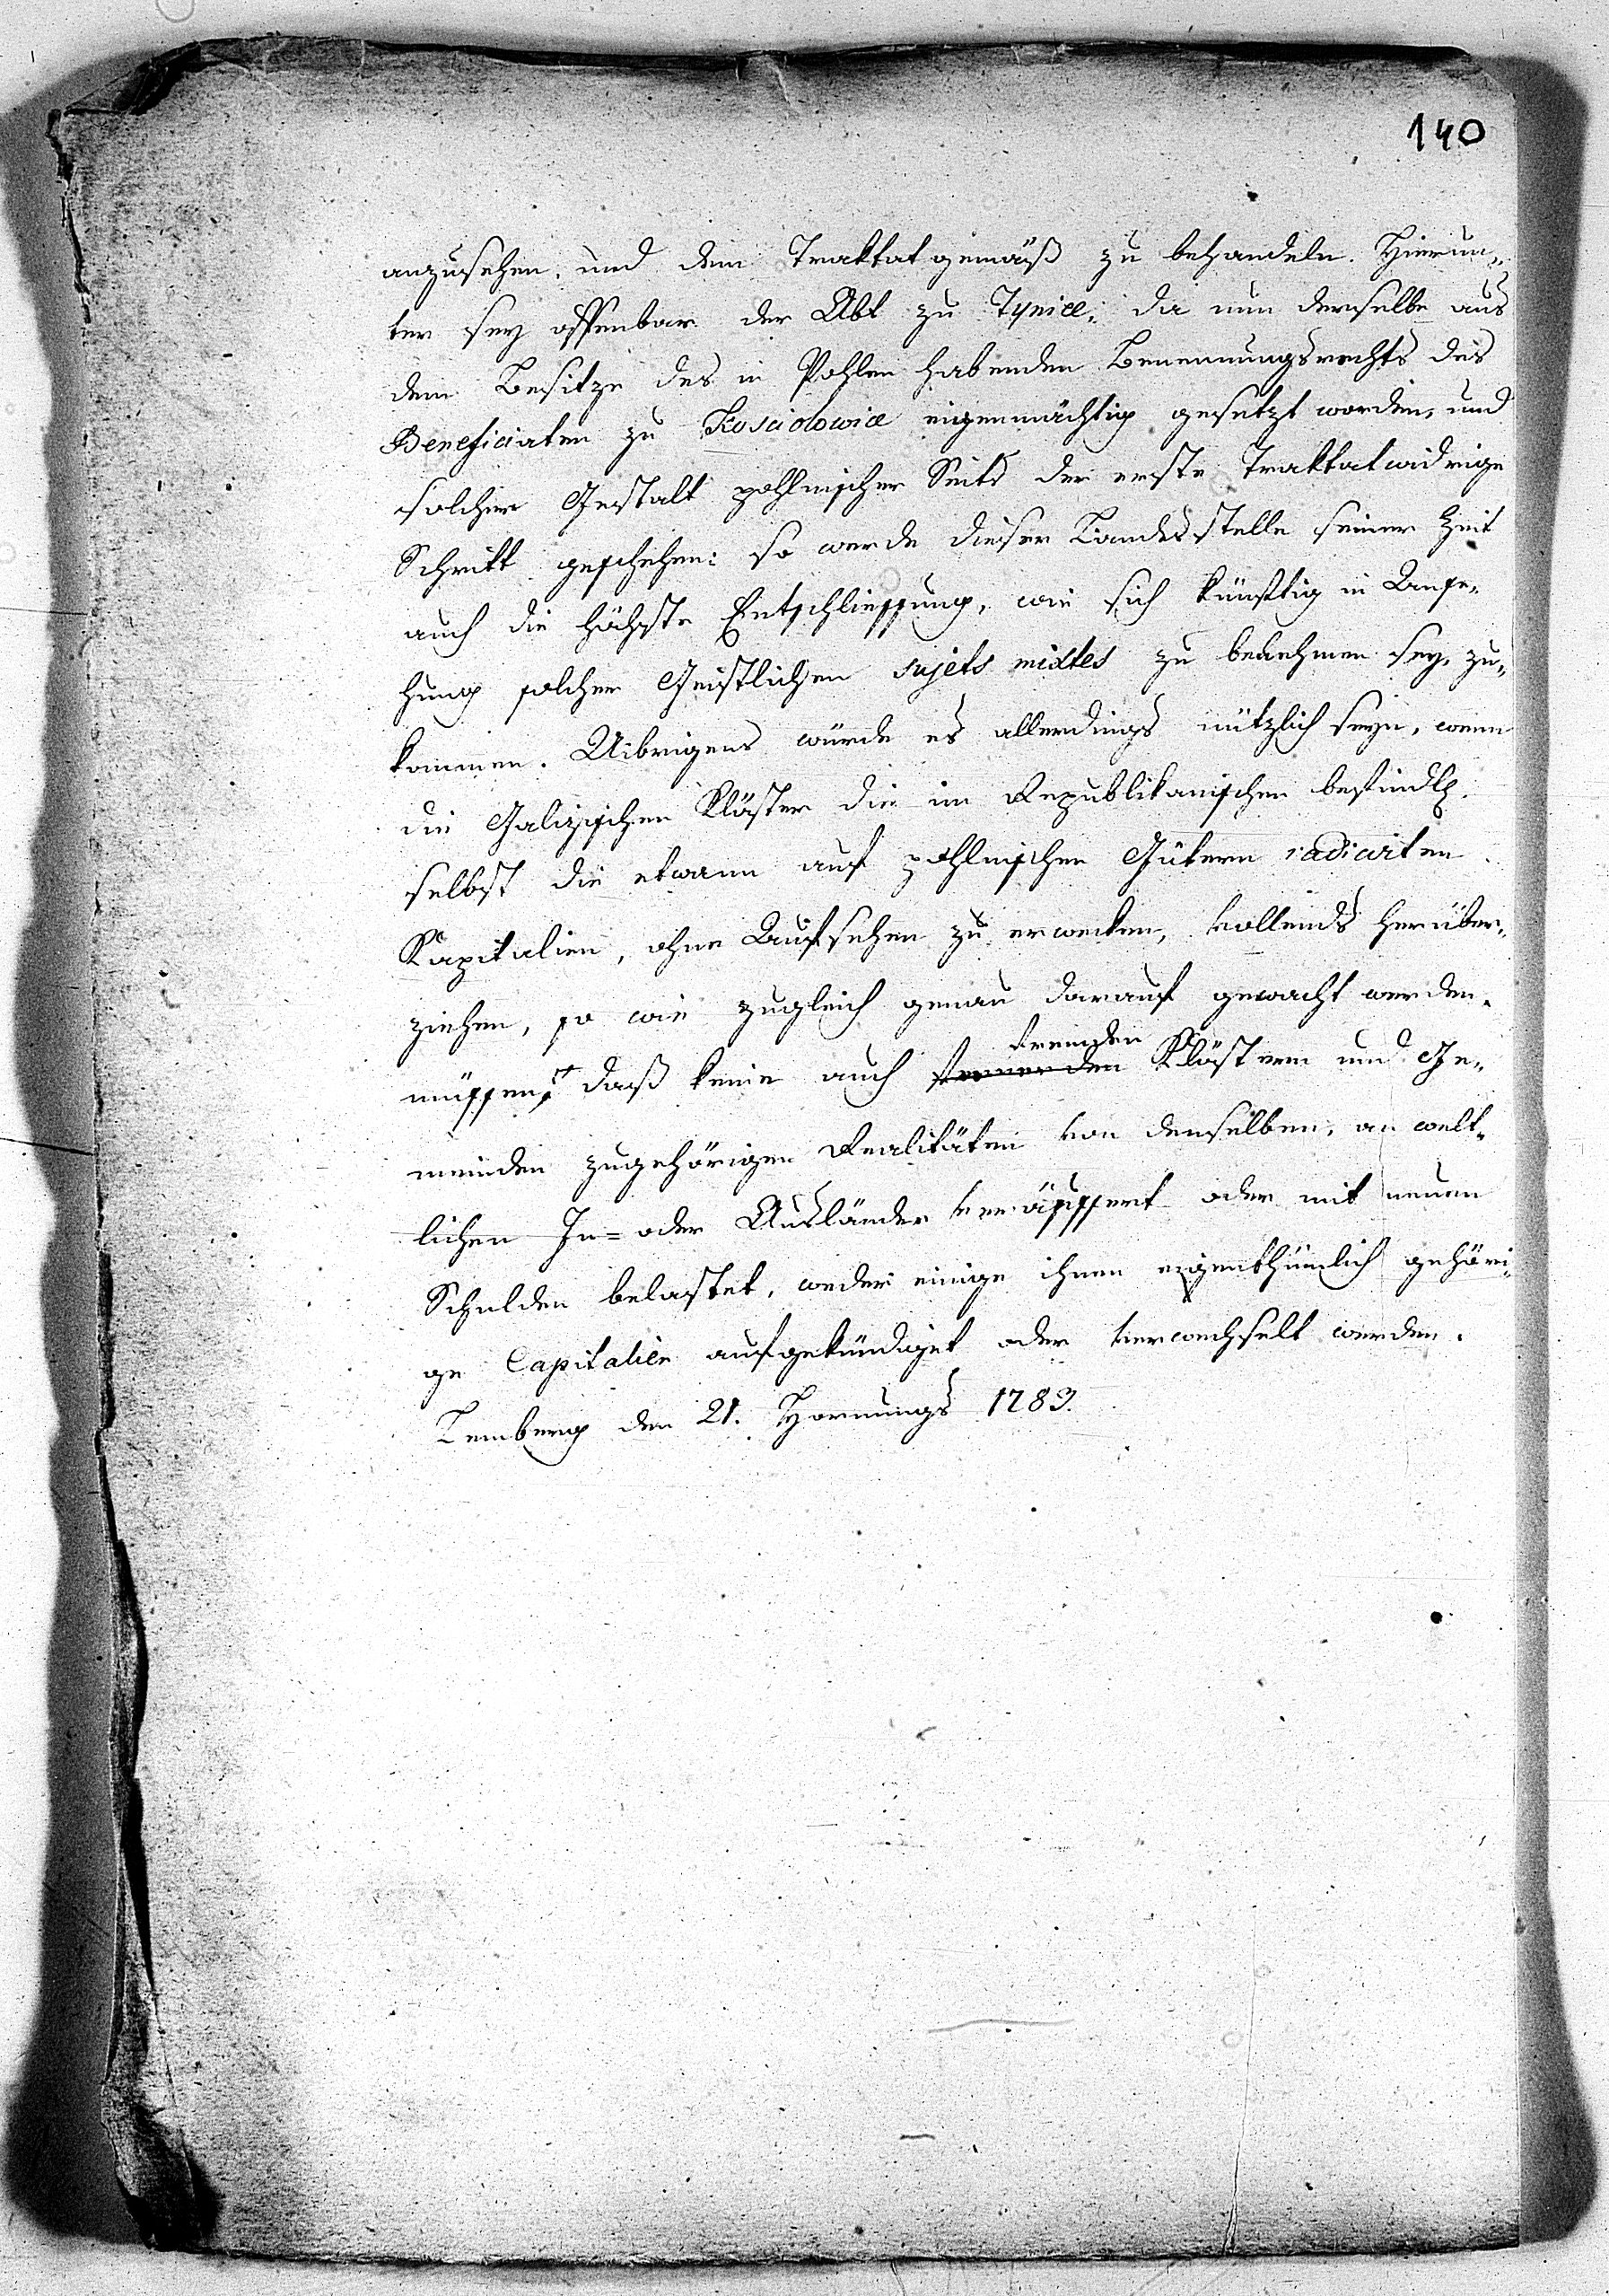 140
anzusehen, und dem Traktat gemäß zu behandeln. Hierun-
ter sey offenbar der Abt zu Tyniec; da nun derselbe aus
dem Besitze des in Pohlen habenden Benennungsrechts des
Beneficiaten zu Kosciolowice eigenmächtig gesetzt worden, und
solcher Gestalt pohlnischer Seits der erste Traktatwidrige
Schritt geschehen: so werde dieser Landesstelle seiner Zeit
auch die höchste Entschliessung, wie sich künftig in Anse-
hung solcher Geistlichen sujets mixtes zu benehmen sey, zu-
kommen. Uibrigens würde es allerdings nützlich seyn, wenn
die Galizischen Klöster die im Republikanischen befindl.
selbst die etwann auf pohlnischen Gütern radicirten
Kapitalien, ohne Aufsehen zu erwecken, vollends herüber-
ziehen, so wie zugleich genau darauf gewacht werden
müssen, daß keine auch fremden Klöstern und Ge-
meinden zugehörigen Realitäten von denselben, an welt-
lichen In= oder Ausländer veräussert oder mit neuen
Schulden belastet, weder einige ihnen eigenthümlich gehöri-
ge Capitalien aufgekündiget oder verwechselt werden.
Lemberg den 21. Hornungs 1783.